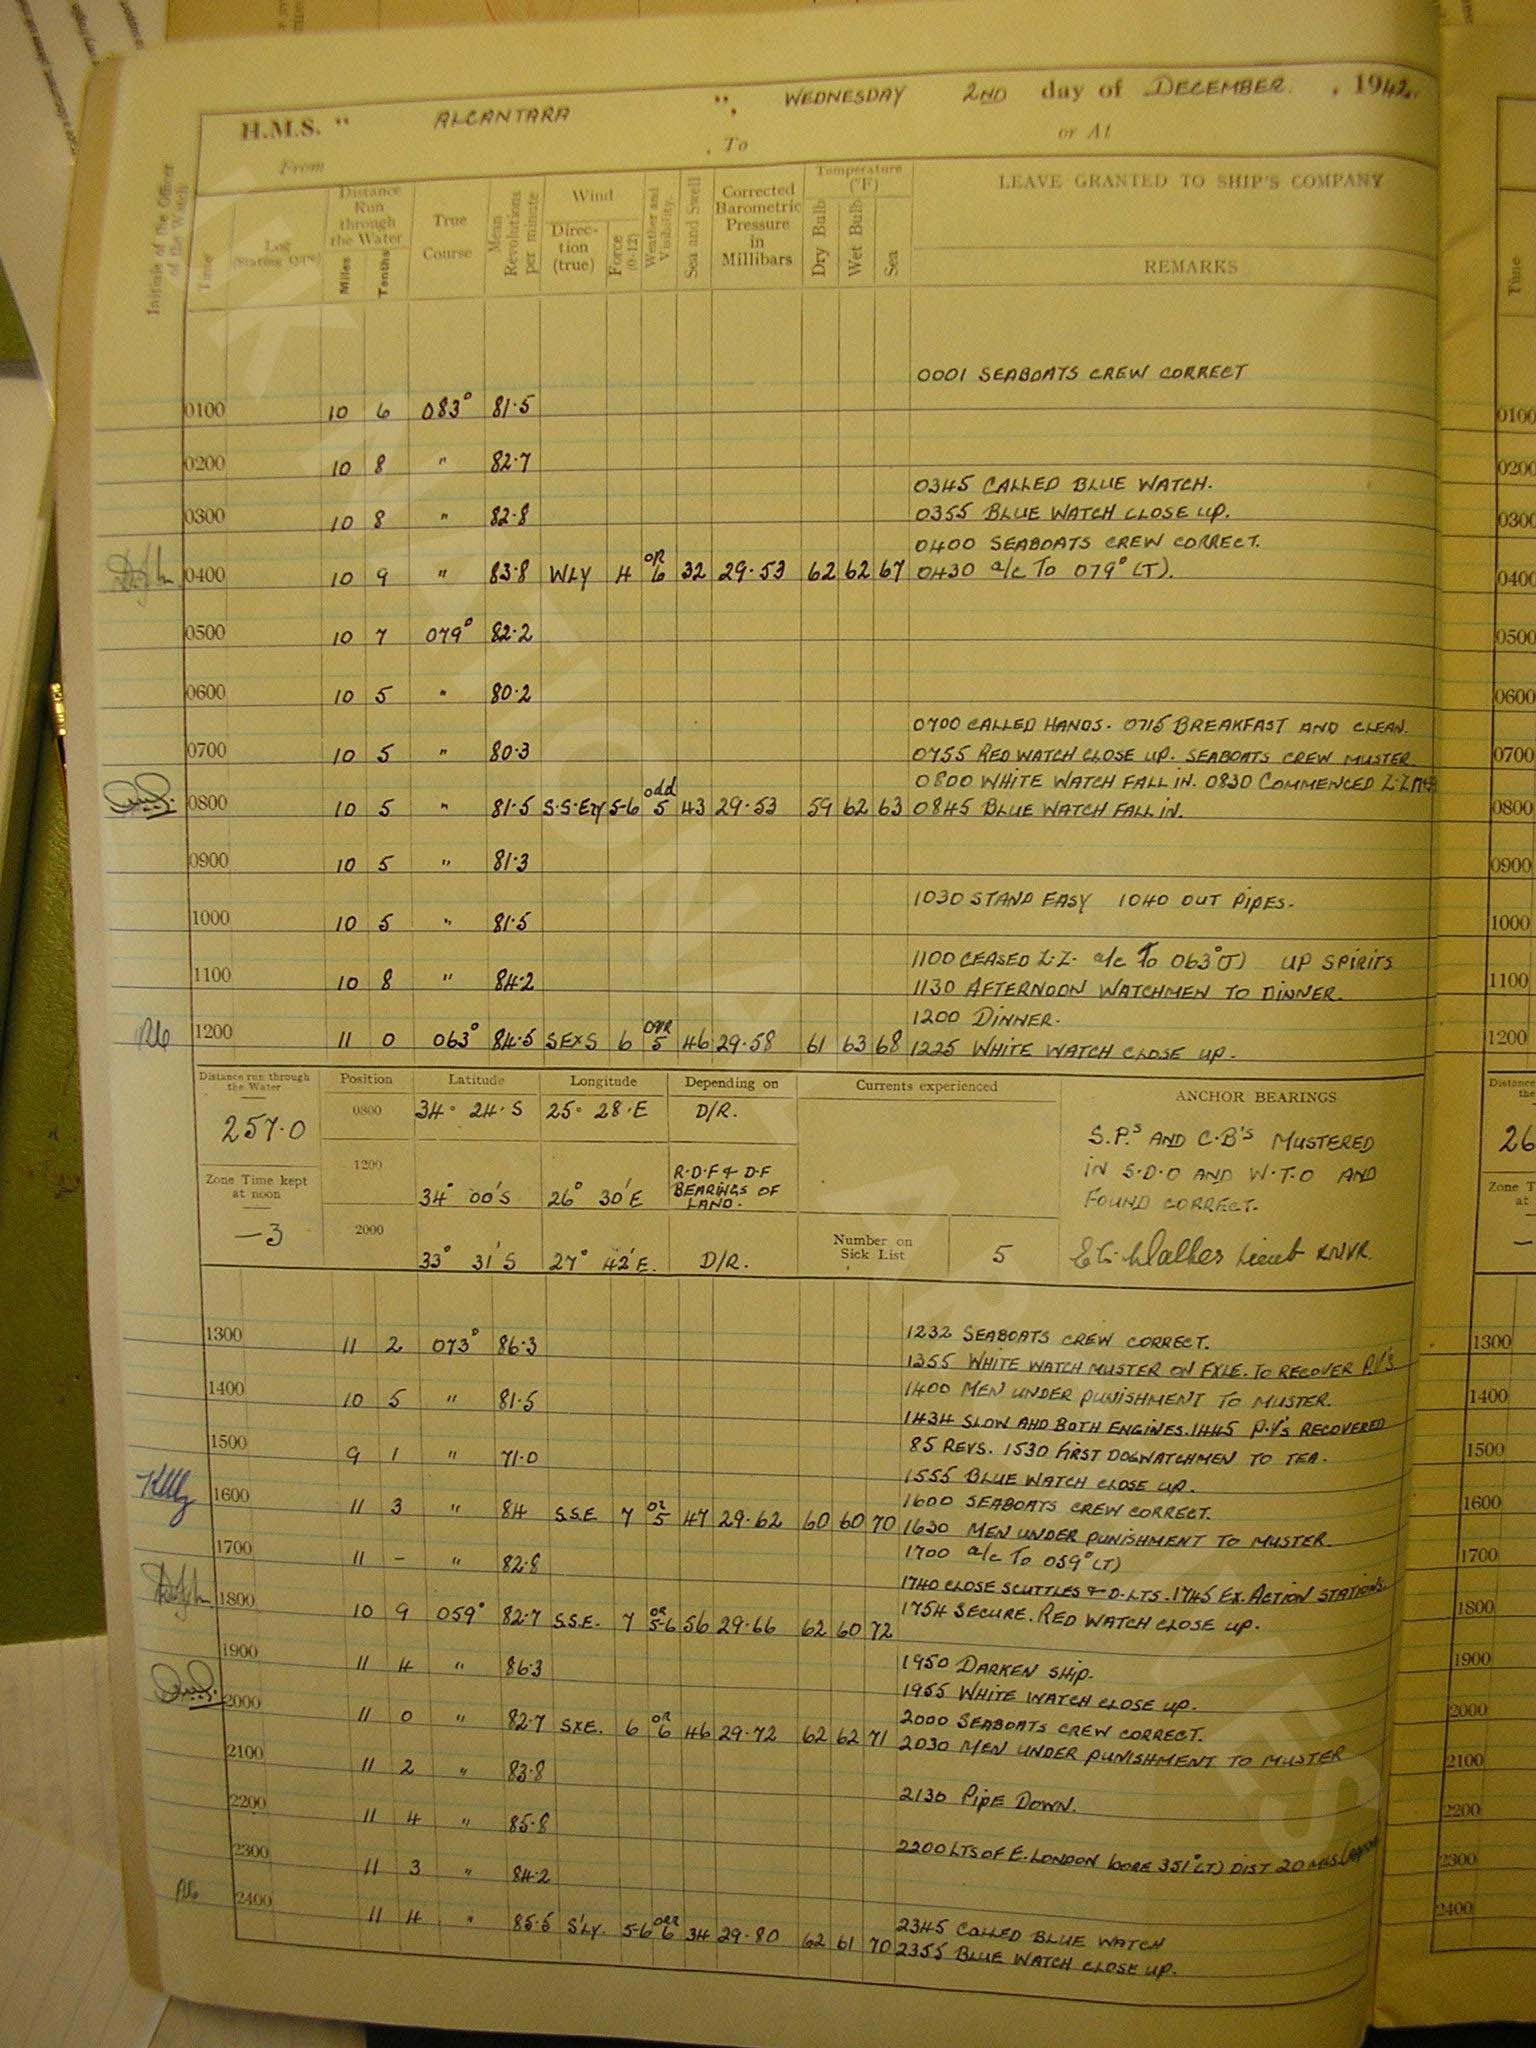 H.M.S. " ALCANTARA ", WEDNESDAY 2ND day of DECEMBER, 1942.
From To or At
Initials of the Officer of the Watch
Time
Log (Stating type)
Distance Run through the Water
Miles Tenths
True Course
Mean Revolutions per minute
Wind
Direction (true)
Force (0-12)
Weather and Visibility
Sea and Swell
Corrected Barometric Pressure in Millibars
Temperature (°F)
Dry Bulb Wet Bulb Sea
LEAVE GRANTED TO SHIP'S COMPANY
REMARKS
0001 SEABOATS CREW CORRECT
0100 10 6 083° 81.5
0200 10 8 " 82.7
0345 CALLED BLUE WATCH.
0300 10 8 " 82.8 0355 BLUE WATCH CLOSE UP.
0400 SEABOATS CREW CORRECT.
0400 10 9 " 83.8 WLY 4 OR 6 32 29.53 62 62 67 0430 a/c To 079° (T).
0500 10 7 079° 82.2
0600 10 5 " 80.2
0700 CALLED HANDS. 0715 BREAKFAST AND CLEAN.
0700 10 5 " 80.3 0755 RED WATCH CLOSE UP. SEABOATS CREW MUSTER.
0800 WHITE WATCH FALL IN. 0830 COMMENCED Z.Z.
0800 10 5 " 81.5 S.S.Ely 5-6 odd 5 43 29.53 59 62 63 0845 BLUE WATCH FALL IN.
0900 10 5 " 81.3
1030 STAND EASY 1040 OUT PIPES.
1000 10 5 " 81.5
1100 CEASED Z.Z. a/c To 063° (T) UP SPIRITS
1100 10 8 " 84.2 1130 AFTERNOON WATCHMEN TO DINNER.
1200 DINNER.
1200 11 0 063° 84.5 SEXS 6 5 46 29.58 61 63 68 1225 WHITE WATCH CLOSE UP.
Distance run through the Water
257.0
Zone Time kept at noon
-3
Position Latitude Longitude Depending on
0800 34° 24.S 25° 28.E D/R.
1200 34° 00'S 26° 30'E R.D.F & D.F BEARINGS OF LAND.
2000 33° 31'S 27° 42'E. D/R.
Currents experienced
Number on Sick List 5
ANCHOR BEARINGS
S.P.s AND C.B's MUSTERED
IN S.D.O AND W.T.O AND
FOUND CORRECT.
Walker Lieut RNVR.
1300 11 2 073° 86.3 1232 SEABOATS CREW CORRECT.
1355 WHITE WATCH MUSTER ON EXLE. TO RECOVER P.V's
1400 10 5 " 81.5 1400 MEN UNDER PUNISHMENT TO MUSTER.
1434 SLOW AHD BOTH ENGINES. 1445 P.V's RECOVERED
1500 9 1 " 71.0 85 REVS. 1530 FIRST DOGWATCHMEN TO TEA.
1555 BLUE WATCH CLOSE UP.
1600 11 3 " 84 S.S.E 7 OR 5 47 29.62 60 60 70 1600 SEABOATS CREW CORRECT.
1630 MEN UNDER PUNISHMENT TO MUSTER.
1700 11 - " 82.8 1700 a/c To 059° (T)
1740 CLOSE SCUTTLES & D.LTS. 1745 EX. ACTION STATIONS.
1800 10 9 059° 82.7 S.S.E. 7 OR 5-6 56 29.66 62 60 72 1754 SECURE. RED WATCH CLOSE UP.
1900 11 4 " 86.3 1950 DARKEN SHIP.
1955 WHITE WATCH CLOSE UP.
2000 11 0 " 82.7 SXE. 6 OR 6 46 29.72 62 62 71 2000 SEABOATS CREW CORRECT.
2030 MEN UNDER PUNISHMENT TO MUSTER
2100 11 2 " 83.8
2130 PIPE DOWN.
2200 11 4 " 85.8
2200 LTS OF E. LONDON bore 351° (T) DIST 20 MLS
2300 11 3 " 84.2
2345 CALLED BLUE WATCH
2400 11 4 " 85.5 S'LY. 5-6 ORR 6 34 29.80 62 61 70 2355 BLUE WATCH CLOSE UP.
Time
0100
0200
0300
0400
0500
0600
0700
0800
0900
1000
1100
1200
26
1300
1400
1500
1600
1700
1800
1900
2000
2100
2200
2300
2400